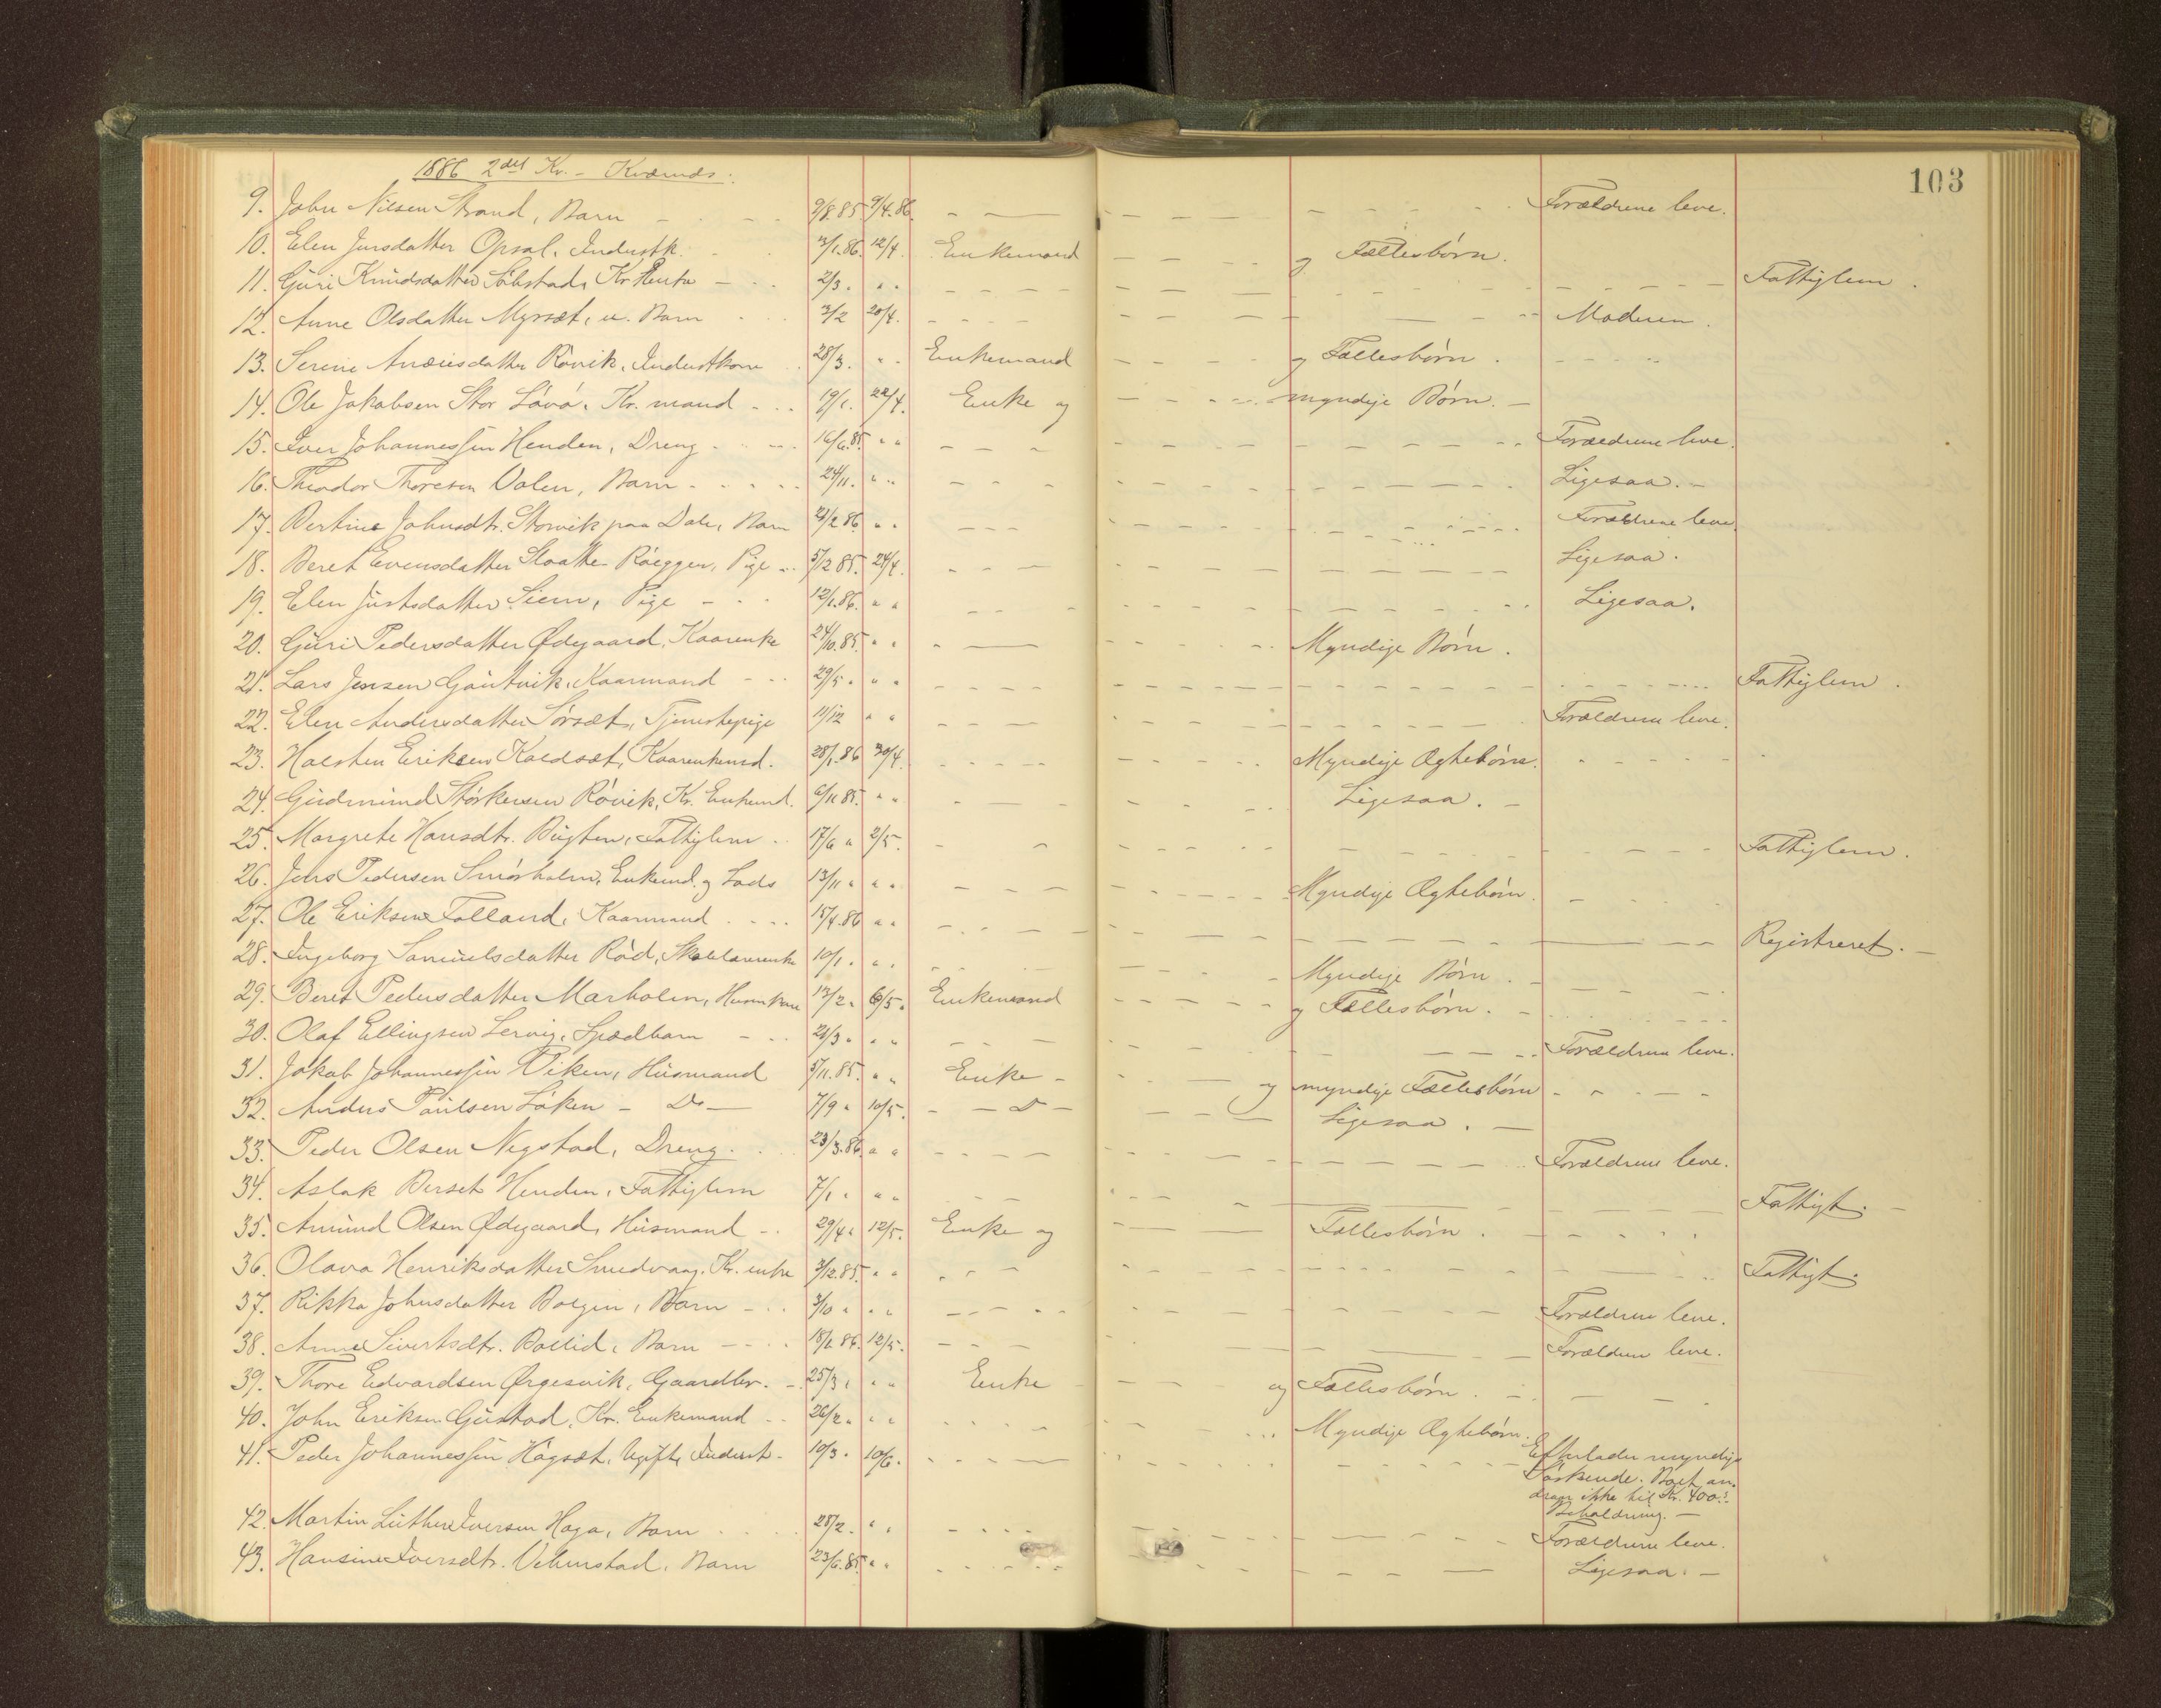 103
1886 2det Kv. - Kværnæs.
9. John Nilsen Strand, Barn - 9/8.85 9/4.86. Forældrene leve.
10. Elen Jensdatter Opsal, Inderstk. 3/1.86. 12/4. Enkemand og Fællesbørn.
11. Guri Knudsdatter Kr. Enke - 2/3. " " Fattiglem.
12. Anne Olsdatter Myrsæt, u. Barn 3/2 20/4. Moderen.
13. Serine Røvik, Inderstkone 28/3. " . Enkemand og Fællesbørn.
14. Ole Jakobsen Stor Kr. mand 19/1. 22/4. Enke og myndige Børn. -
15. Iver Johannessen Henden, Dreng 16/6.85 " " Forældrene leve.
16. Theodor Thoresen Valen, Barn 24/11. " " Ligesaa. -
17. Bertine Johnsdtr. Storvik paa Dale, Barn 21/2 86 " " Forældrene leve.
18. Beret Evensdatter Røeggen, Pige 5/12 85. 24/4. Ligesaa.
19. Elen Justsdatter Siem, Pige - 12/1.86. " " Ligesaa.
20. Guri Pedersdatter Ødegaard, Kaarenke 24/10.85. " " Myndige Børn.
21. Lars Jensen Gautvik, Kaarmand 29/5. " " Fattiglem.
22. Elen Andersdatter Sørsæt, Tjenestepige 11/12 " " Forældrene leve.
23. Halsten Eriksen Kaldsæt, Kaarenkemd. 28/1.86 30/4. Myndige Ægtebørn.
24. Gudmund Størkersen Røvik, Kr. Enkemd. 6/11 85. " " Ligesaa. -
25. Margrete Hansdtr. Bugten, Fattiglem 17/6 " 2/5. Fattiglem.
26. Jens Pedersen Smørholm, Enkemd. og Lods 13/11 " " " Myndige Ægtebørn.
27. Ole Eriksen Folland, Kaarmand 15/4.86 " " Registreret. -
28. Ingeborg Samuelsdatter Rød, 10/1. " " Myndige Børn.
29. Beret Pedersdatter Marholm, 13/2. 6/5. Enkemand og Fællesbørn.
30. Olaf Ellingsen Lervig, Spædbarn 21/3. " " Forældrene leve.
31. Jakob Johannessen Viken, Husmand 5/11.85. " " Enke - og myndige Fællesbørn
32. Anders Paulsen Løken - Do - 7/9 " 10/5. - Do - Ligesaa. -
33. Peder Olsen Negstad, Dreng. 23/3.86. " " Forældrene leve.
34. Aslak Berset Henden, Fattiglem 7/1. " " Fattigt. -
35. Amund Olsen Ødegaard, Husmand 29/4 " 12/5. Enke og Fællesbørn.
36. Olava Henriksdatter Smedvaag, Kr. enke 3/12.85. " " Fattigt.
37. Rikka Johnsdatter Bolgen, Barn 3/10 " " " Forældrene leve.
38. Anne Sivertsdtr. Bollid, Barn 18/1 86. 12/5. Forældrene leve.
39. Thore Edvardsen Ørgesvik, Gaardbr. 25/3. " " Enke og Fællesbørn.
40. John Eriksen Gustad, Kr. Enkemand 26/2. " " Myndige Ægtebørn.
41. Peder Johannessen Hagsæt, Ugift, Inderst - 10/3. 10/6. Efterlader myndige
Søskende. Boet an-
drager ikke til Kr. 400
Beholdning. -
42. Martin Luther Iversen Haga, Barn 28/2. " " Forældrene leve.
43. Hansine Iversdtr. Vebenstad, Barn 23/6.85. " " Ligesaa. -